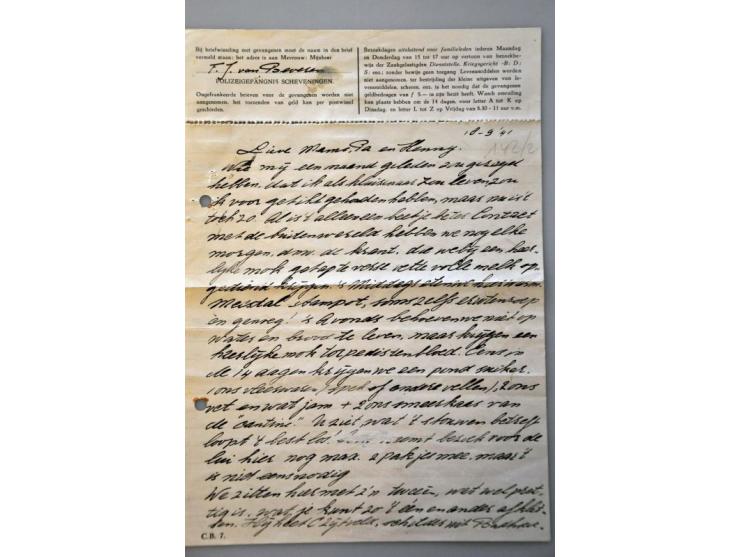 Bij briefwisseling met gevangenen moet de naam in den brief
vermeld staan: het adres is aan Mevrouw: Mijnheer
T. J. van
POLIZEIGEFÄNGNIS SCHEVENINGEN.
Ongefrankeerde brieven voor de gevangenen worden niet
aangenomen, het toezenden van geld kan per postwissel
geschieden.
Bezoekdagen uitsluitend voor familieleden iederen Maandag
en Donderdag van 15 tot 17 uur op vertoon van bezoekbe-
wijs der Zaakgelastigden Dienststelle. Kriegsgericht · B: D:
S: enz.: zonder bewijs geen toegang. Levensmiddelen worden
niet aangenomen, ter bestrijding der kleine uitgaven van le-
vensmiddelen, scheren, enz. is het noodig dat de gevangenen
geldbedragen van ƒ 5.— in zijn bezit heeft. Wasch omruiling
kan plaats hebben om de 14 dagen, voor letter A tot K op
Dinsdag, en letter L tot Z op Vrijdag van 8.30 - 11 uur v.m.
18-9-'41
142/2
Lieve Mams, Pa en Henny.
Wie mij een maand geleden zou gezegd
hebben, dat ik als kluizenaar zou leven, zou
ik voor getikt gehouden hebben, maar nu is 't
toch zo. Al is 't alleen een beetje
met de buitenwereld hebben we nog elke
morgen, d.m.v. de krant, die we bij een heer-
lijke mok getapte verse vette volle melk op-
gediend krijgen. 's Middags eten we
stampot, soms zelfs erwtensoep
en genoeg! 's Avonds behoeven we niet op
water en brood te leven, maar krijgen een
heerlijke mok torpedistenbloed. Eens in
de 14 dagen krijgen we een pond suiker,
1 ons vleeswaren (spek of andere vellen), 2 ons
vet en wat jam + 2 ons smeerkaas van
de "cantine". U ziet wat 't stouwen betreft
loopt 't best los! neemt bezoek voor de
lui hier nog max. 2 pakjes mee, maar 't
is niet eens nodig
We zitten hier met z'n tweeën, wat wel pret-
tig is, want je kunt zo 't één en ander
Hij heet schilder uit
C.B. 7.